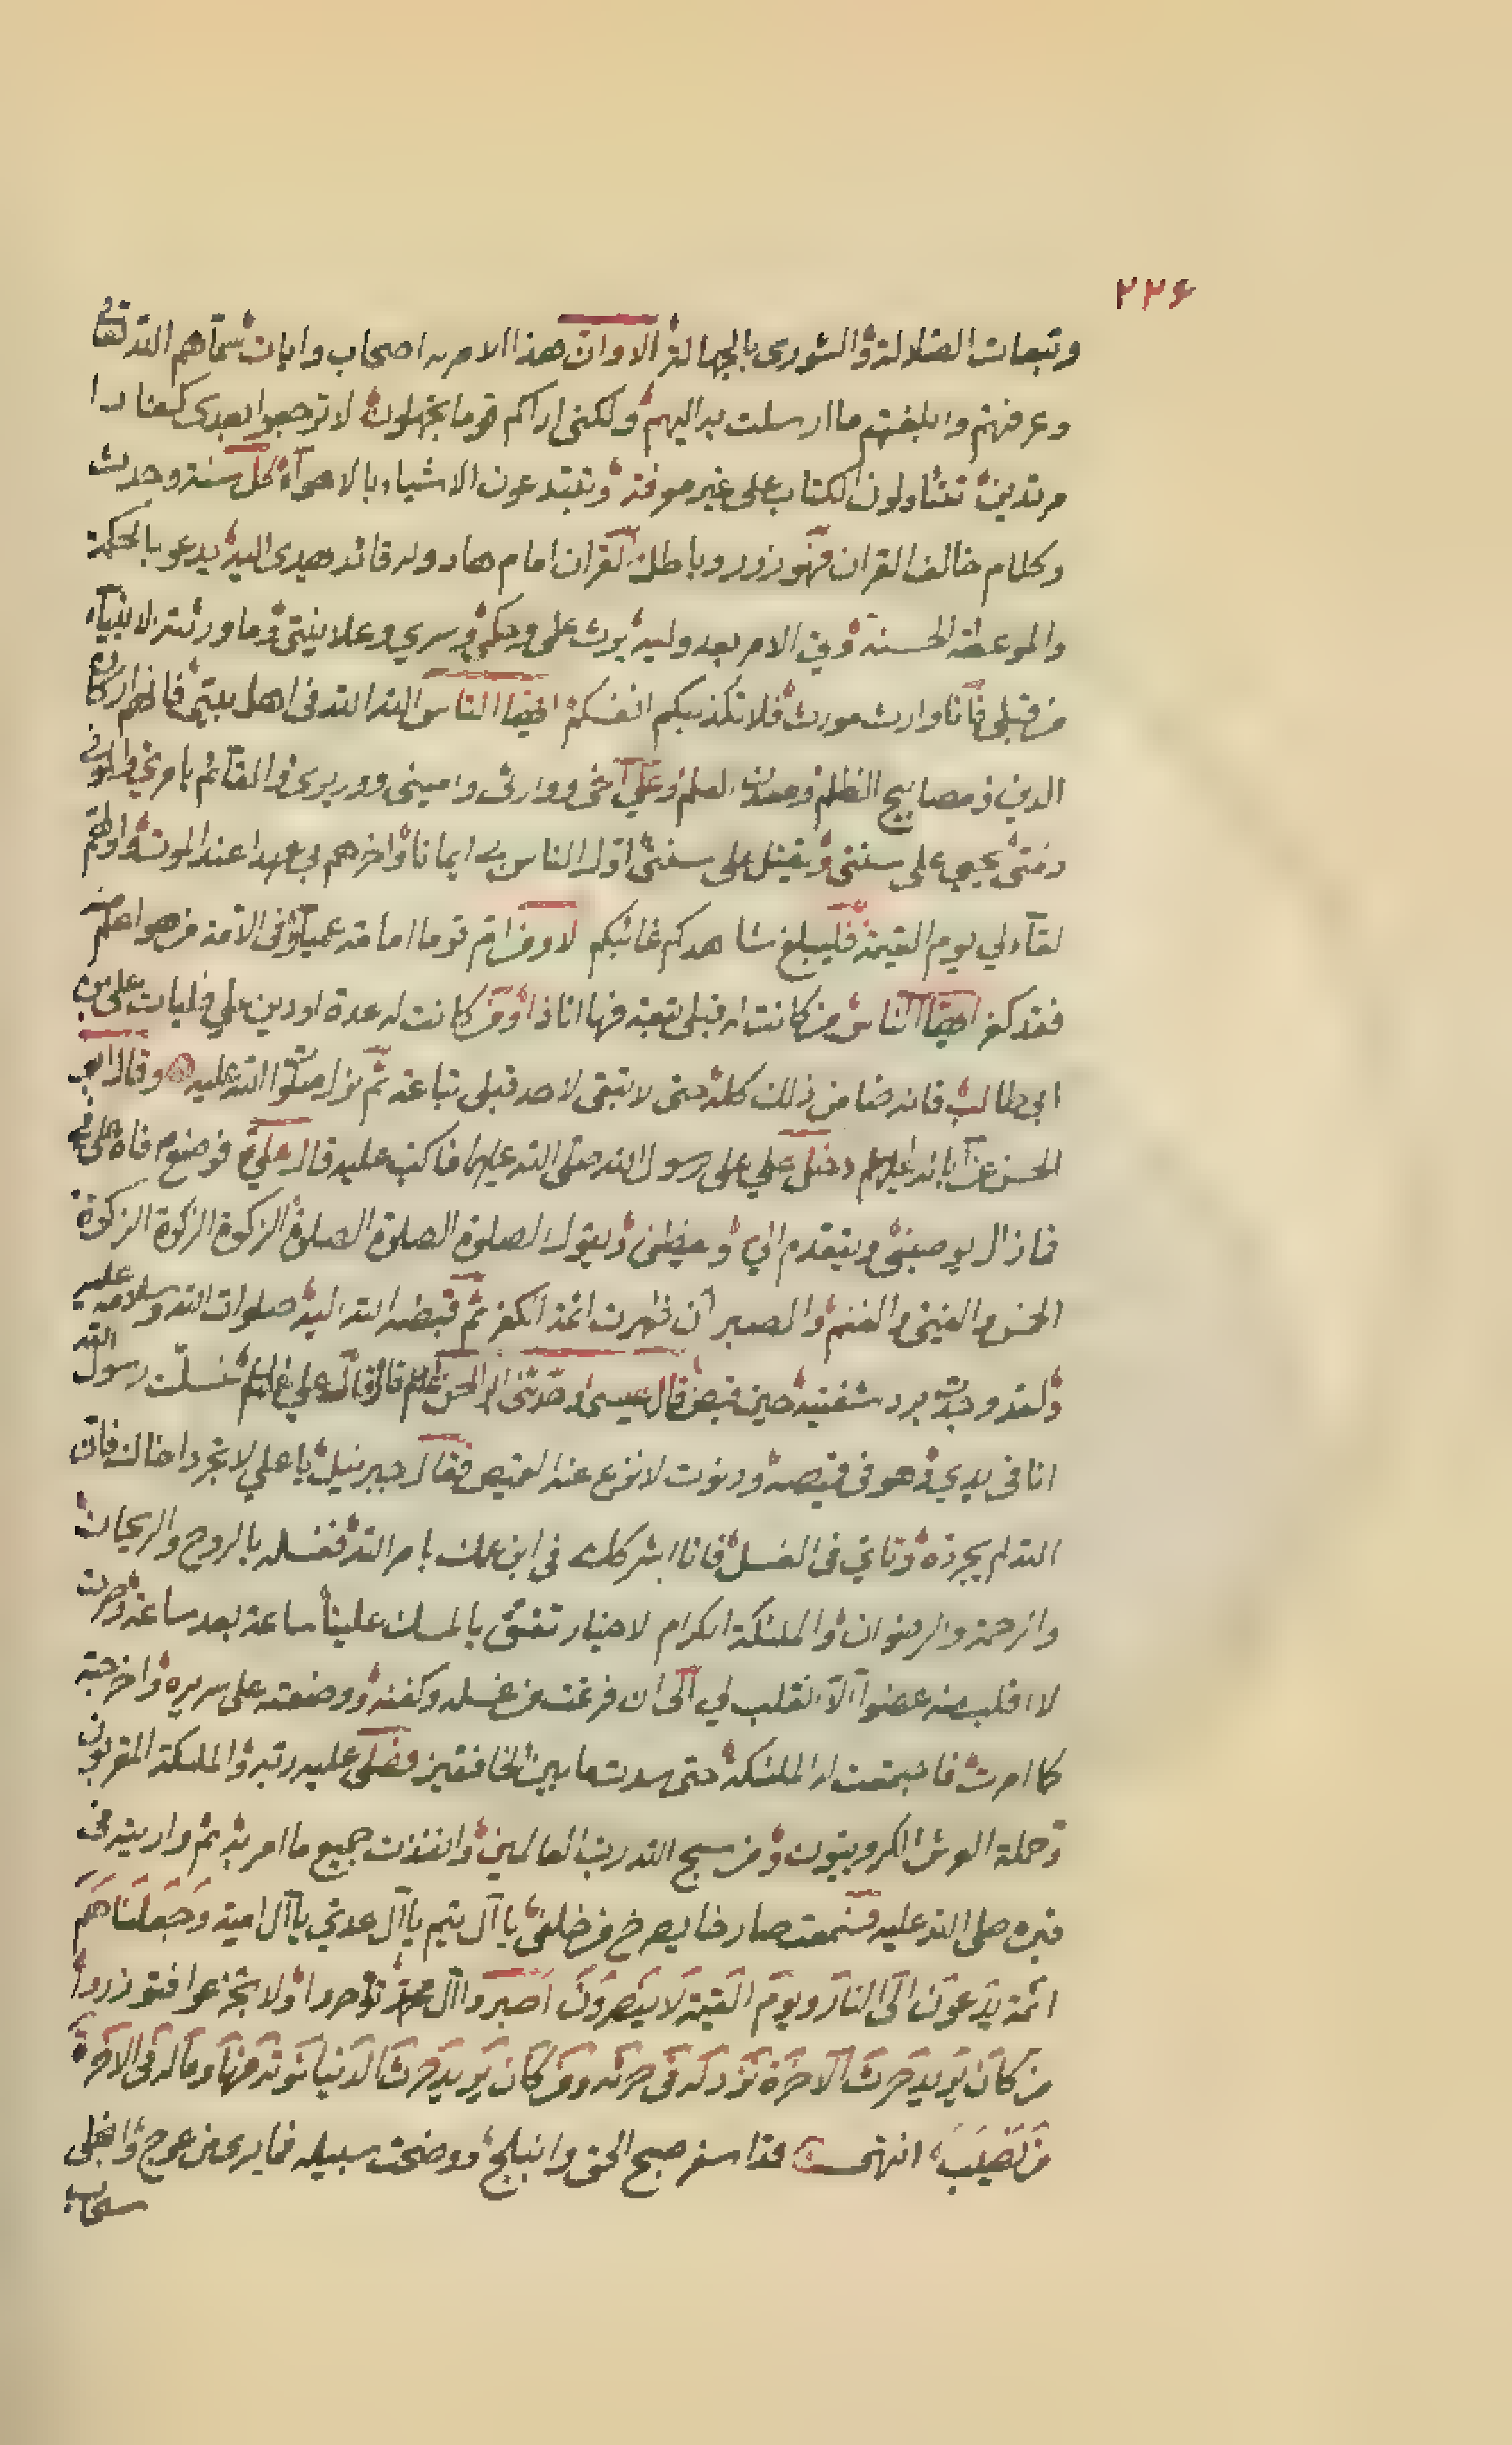 ٢٢۶
وتبعات الضلالة والشورى بالجهالة الا وان هذا الامر له اصحاب وايات سماهم الله تعا
وعرفتهم وابلغتهم ما ارسلت به اليهم ولكني اراكم قوما تجهلون لا ترجعوا بعدي كفارا
مرتدين تتاولون الكتاب على غير معرفة وتبتدعون الاشياء بالاهواء كل سنة وحدث
وكلام خالف القران فهو زور وباطل القران امام هاد وله قائد يهدي اليه يدعو بالحكمة
والموعظة الحسنة وفي الامر بعد وليه يرث علمي وحكمي وسري وعلانيتي وما ورثته الانبياء
من قبلي فانا وارث مورث فلا تكذبكم انفسكم ايها الناس الله الله في اهل بيتي فانهم اركان
الدين ومصابيح الظلم ومعدن العلم وعلي اخي ووارثي واميني ووزيري والقائم بامري والموفي
ذمتي يحيى على سنتي ويقتل على سنتي اول الناس بي ايمانا واخرهم بي عهدا عند الموت واولهم
لقاء لي يوم القيمة فليبلغ شاهدكم غائبكم الا ومن ام قوما امامة عمياء وفي الامة من هو اعلم منه
فقد كفر ايها الناس من كانت له قبلي تبعة فها انا ذا ومن كانت له عدة او دين علي فليات علي بن
ابي طالب فانه ضامن ذلك كله حتى لا تبقى لاحد قبلي تباعة ثم نزل صلوات الله عليه وقال ابو
الحسن عن ابائه عليهم دخل علي على رسول الله صلى الله عليهما فاكب عليه قال علي فوضع فاه على اذني
فما زال يوصيني ويتقدم الي ويعظني ويقول الصلوة الصلوة الصلوة الزكوة الزكوة الزكوة
الخمس والفيئ والغنم والصبر ان ظهرت ائمة الكفر ثم قبضه الله اليه صلوات الله وسلامه عليه
ولقد وجدت برد شفتيه حين قبض قال عيسى وحدثني ابو الحسن علم قال قال علي علم غسلت رسول الله
انا في يدي وهو في قميصه ودنوت لانزع عنه القميص فقال جبرئيل يا علي لا تجرد اخاك فان
الله لم يجرده وتانى في الغسل فانا اشركك في ابن عمك بامر الله فغسله بالروح والريحان
والرحمة والرضوان والملئكة الكرام الاخيار تفتق بالمسك علينا ساعة بعد ساعة وصرت
لا اقلب منه عضوا الا انقلب لي الى ان فرغت من غسله وكفنه ووضعته على سريره واخرجته
كما امرت فاجتمعت له الملئكة حتى سدت ما بين الخافقين فصلى عليه ربه والملئكة المقربون
وحملة العرش الكروبيون ومن سبح الله رب العالمين وانفذت جميع ما امر به ثم واريته في
قبره صلى الله عليه فسمعت صارخا يصرخ من خلفي يا آل تيم يا آل عدي يا آل امية وَجَعَلْنَاهُمْ
ائمة يدعون الى النار ويوم القيمة لا ينصرون اصبروا ال محمد تؤجروا ولا تجزعوا فتوزروا
من كان يريد حرث الاخرة نزد له في حرثه ومن كان يريد حرث الدنيا نؤته منها وما له في الاخرة
من نصيب انتهى فقد اسفر صبح الحق وانبلج ووضحت سبيله فما يرى من عوج وانجلى
سحاب